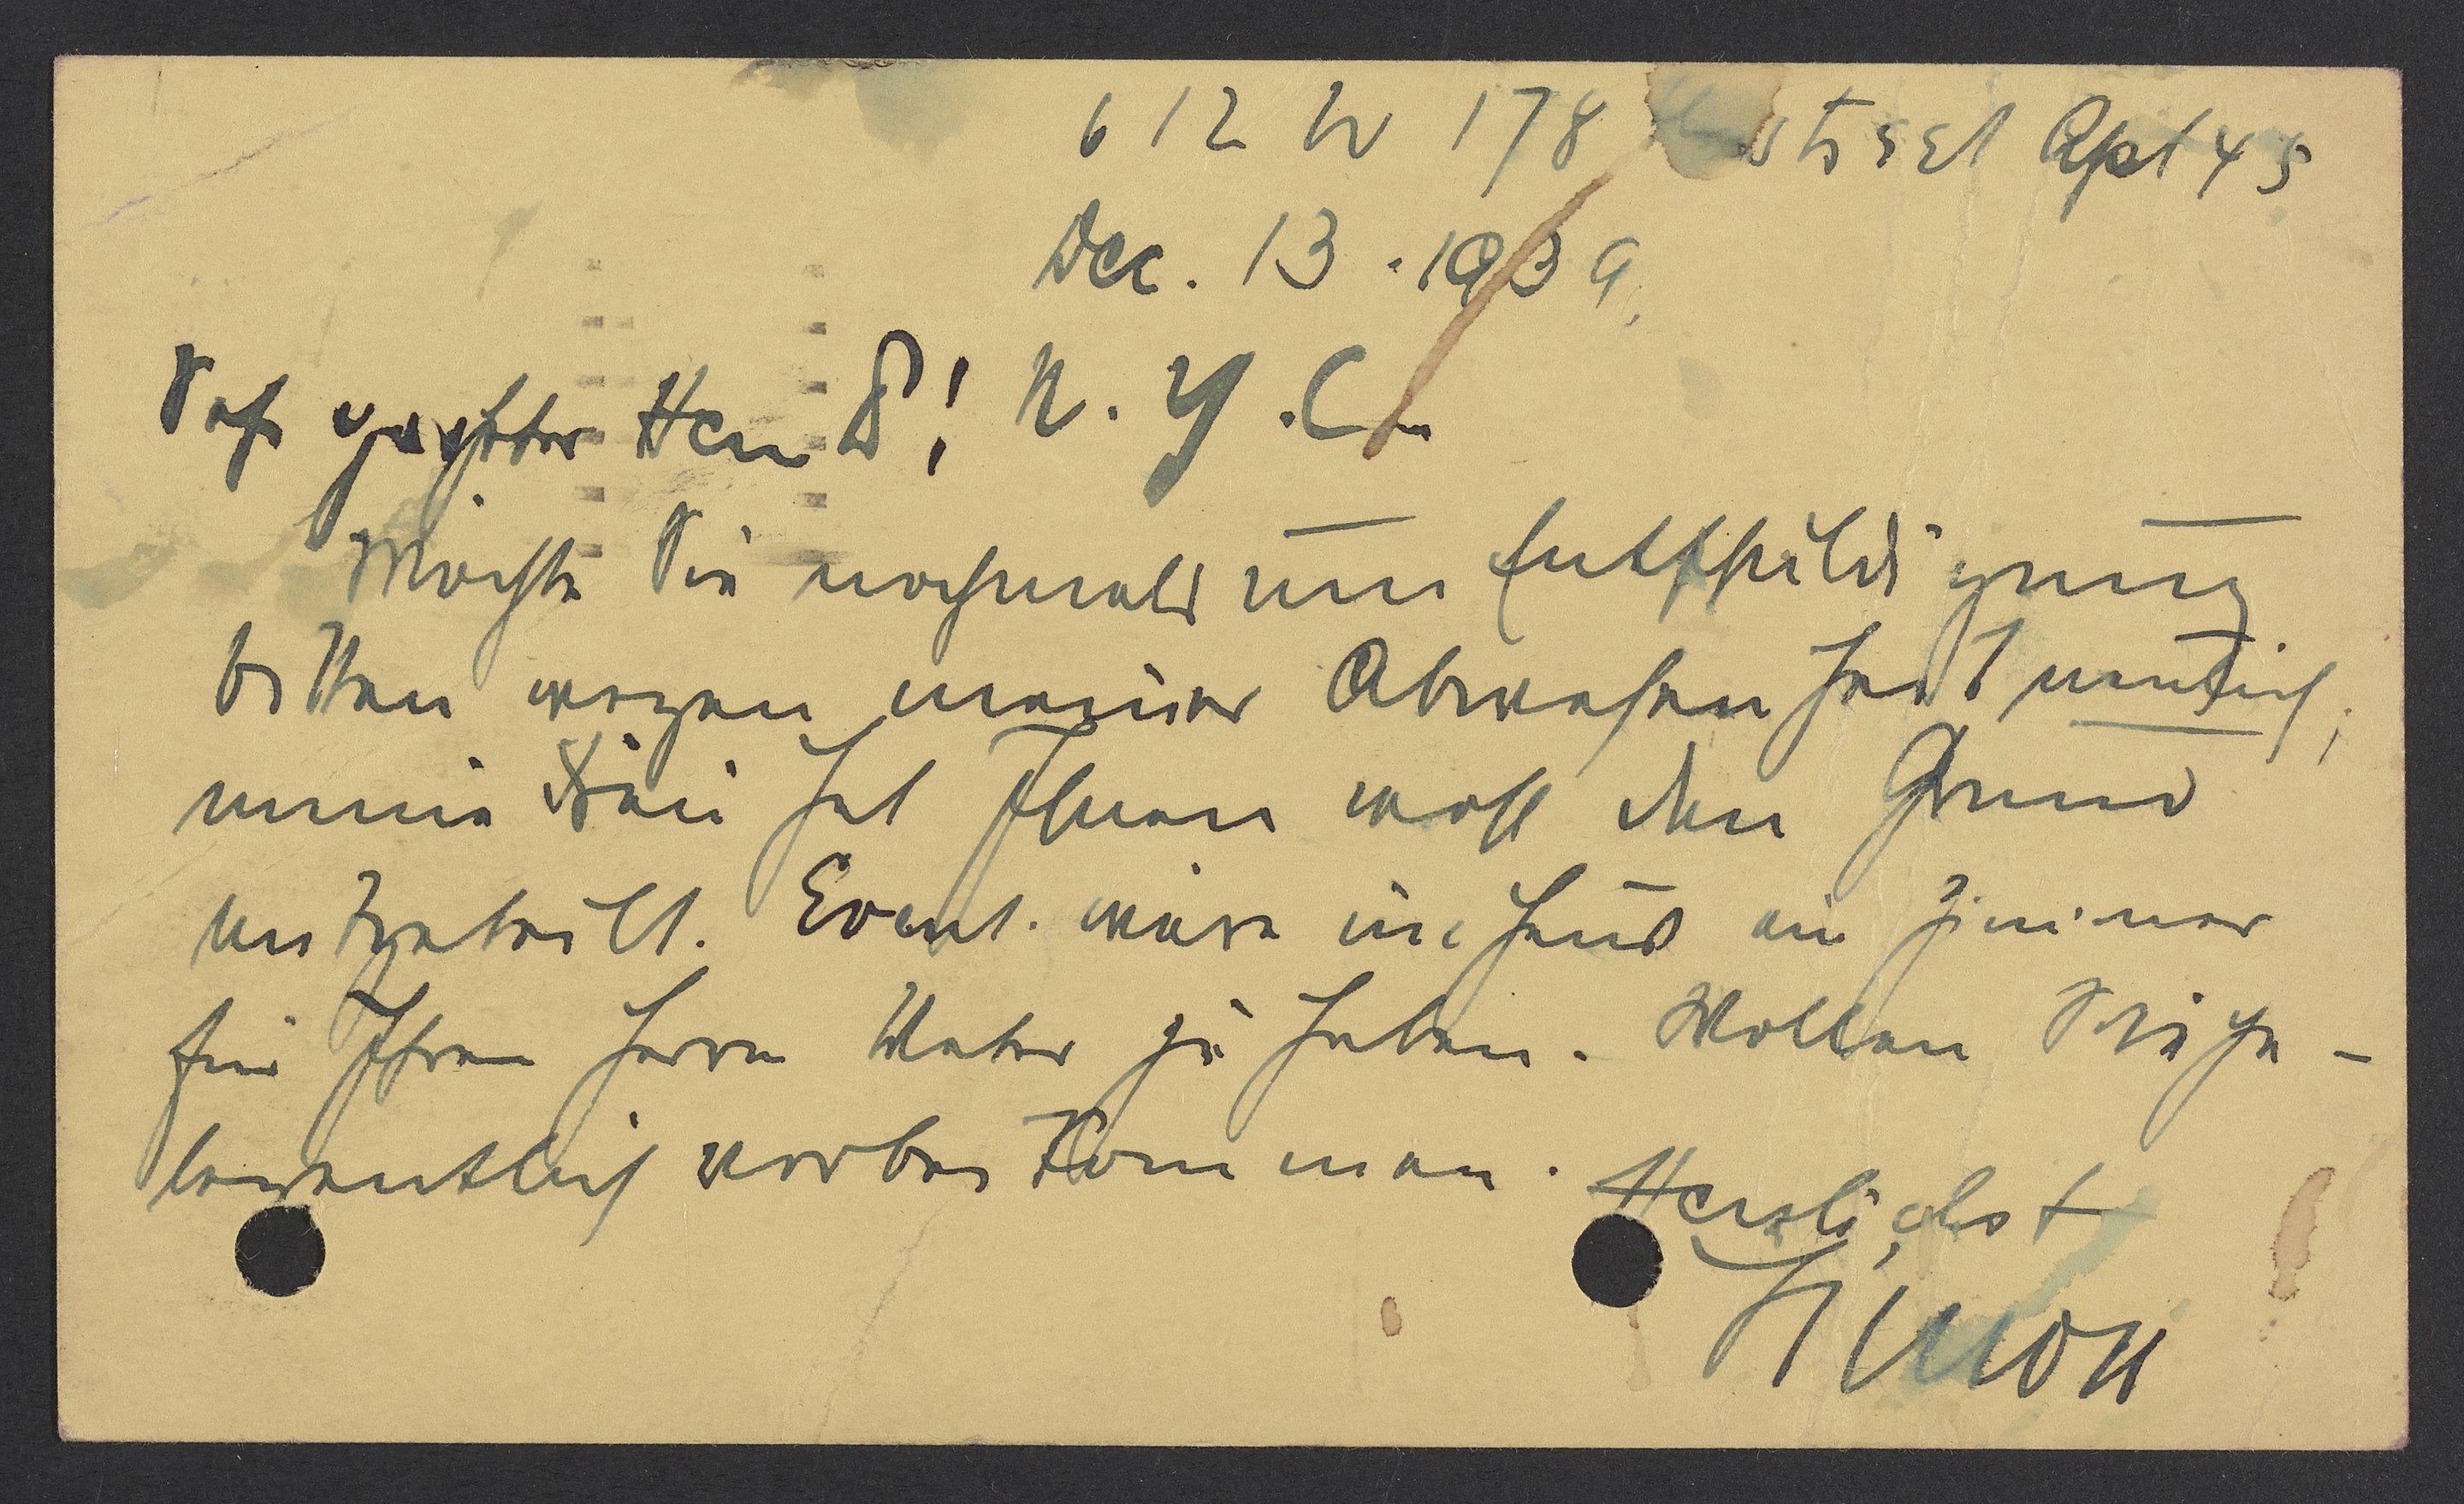 612 W 178 Street Apt 45
Dec. 13. 1939.
N. Y. C.
Sehr geehrter Herr D!
Möchte Sie nochmals um Entschuldigung
bitten wegen meiner Abwesenheit neulich,
meine Frau hat Ihnen wohl den Grund
mitgeteilt. Event. wäre im Haus ein Zimmer
für Ihren Herrn Vater zu haben. Wollen Sie ge-
legentlich vorbei kommen. Herzlichst
Simon